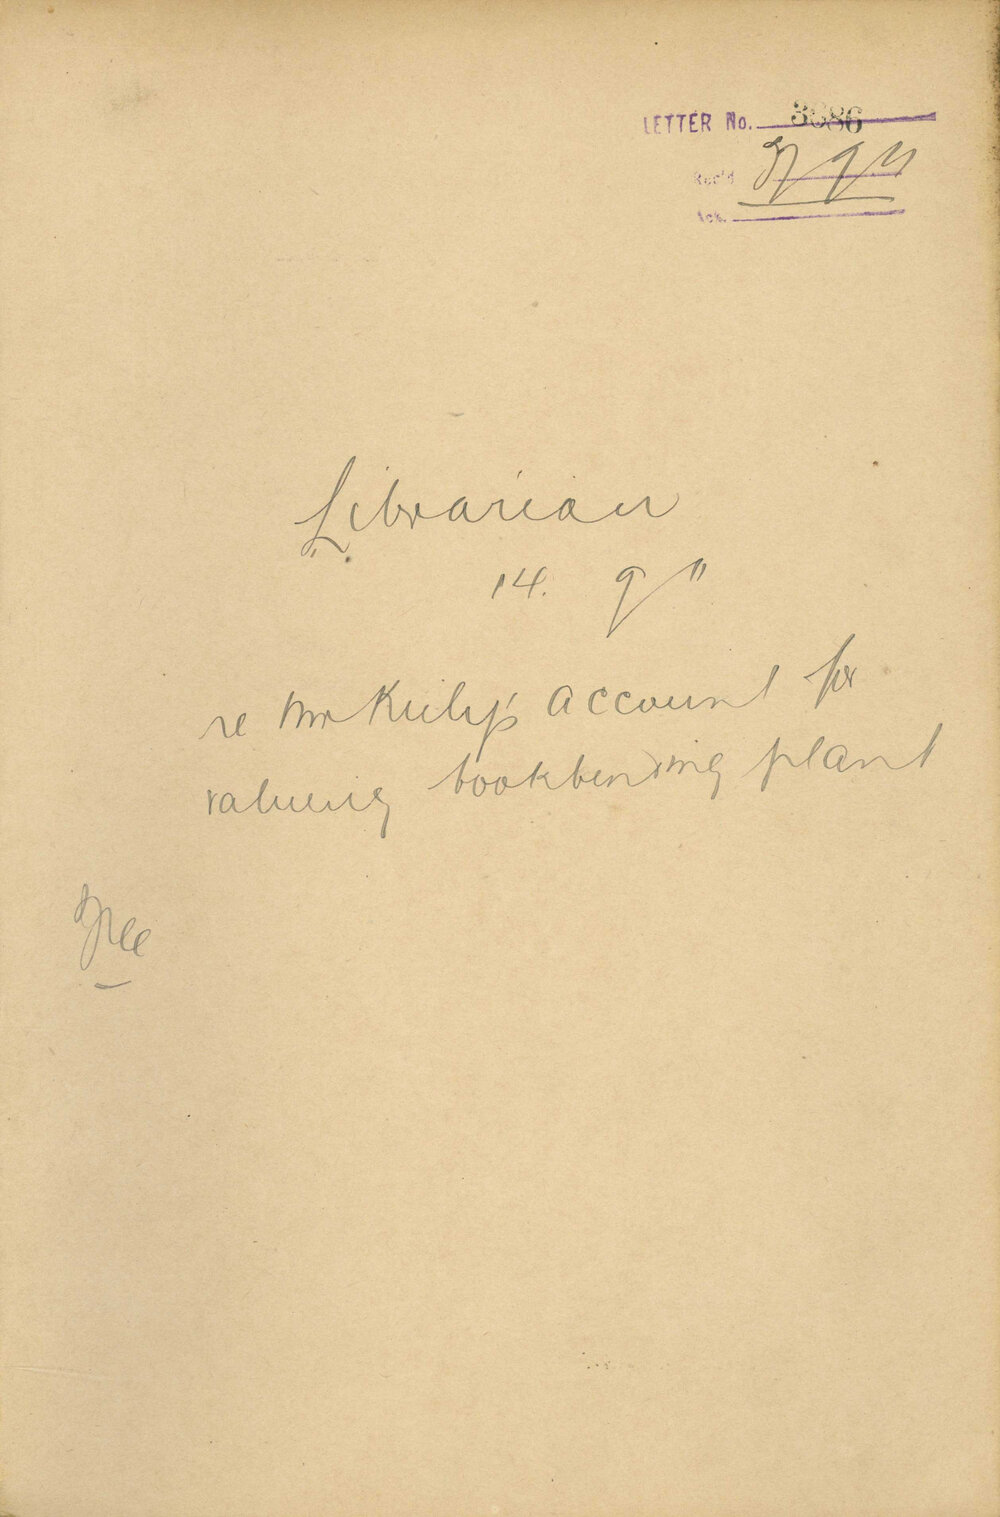 LETTER No. 3686
Rec'd
Ack.
Librarian
14. 9 11
re Mr Kiely's account for
valuing bookbinding plant